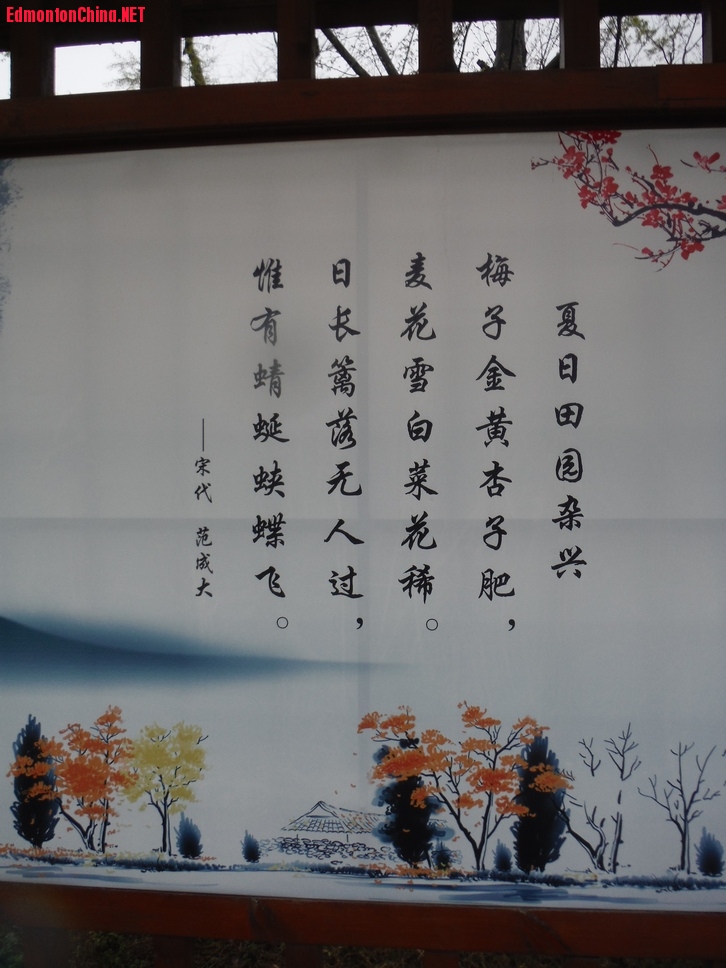 EdmontonChina.NET
夏日田园杂兴
梅子金黄杏子肥，
麦花雪白菜花稀。
日长篱落无人过，
惟有蜻蜓蛱蝶飞。
——宋代 范成大